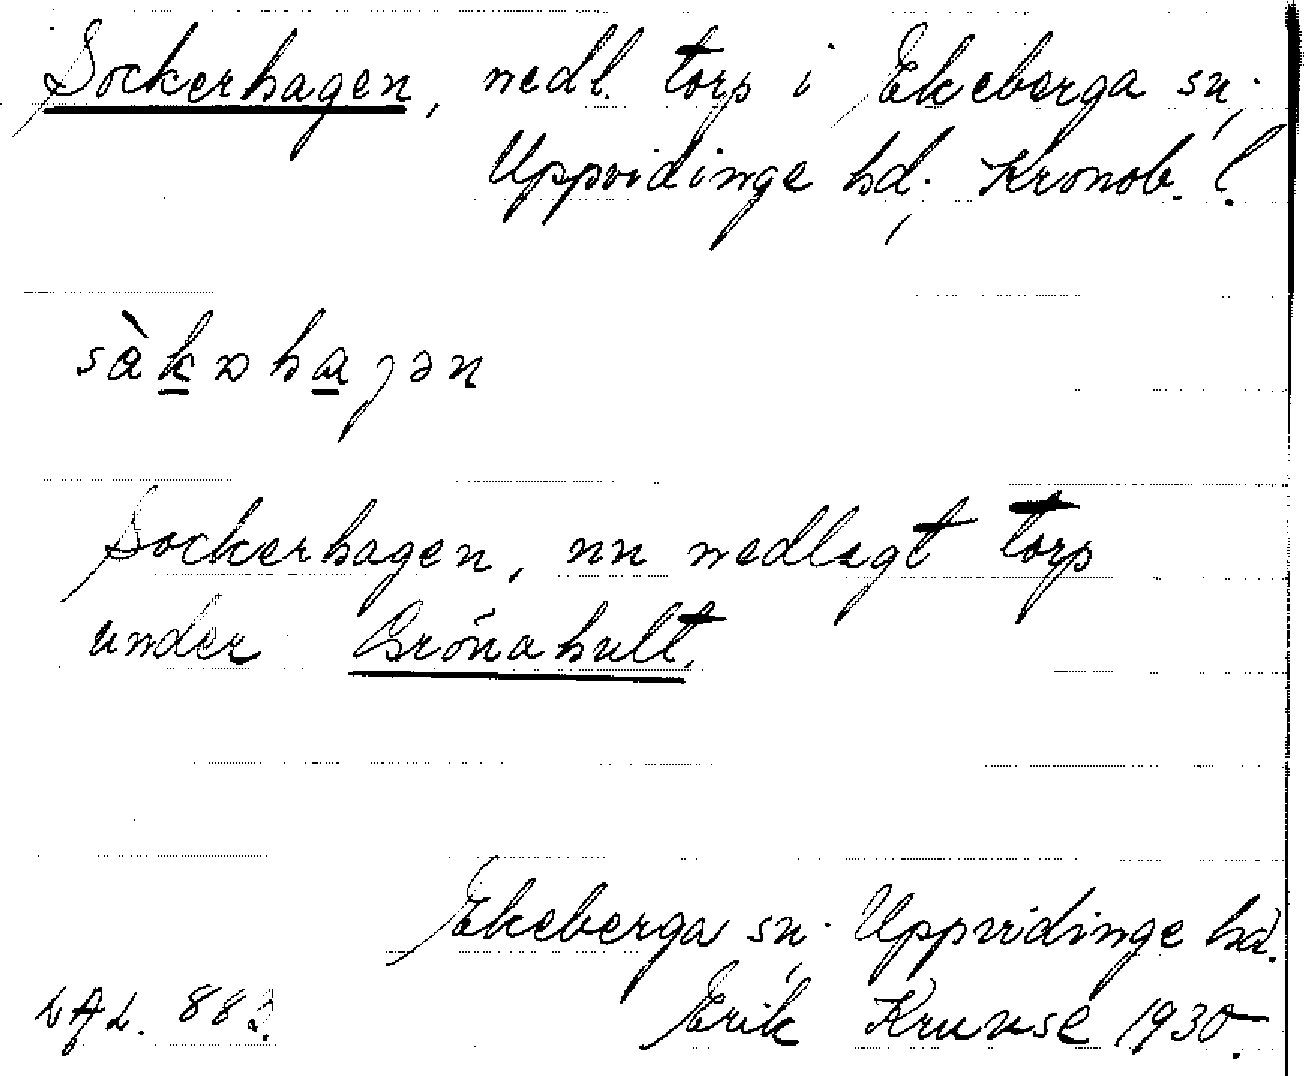 Sockerhagen, nedl. torp i Ekeberga sn;
Uppvidinge hd; Kronob. l.
Sockerhagen, nn nedlagt torp
under Grönahult.
Ekeberga sn; Uppvidinge hd.
Erik Kruuse 1930.